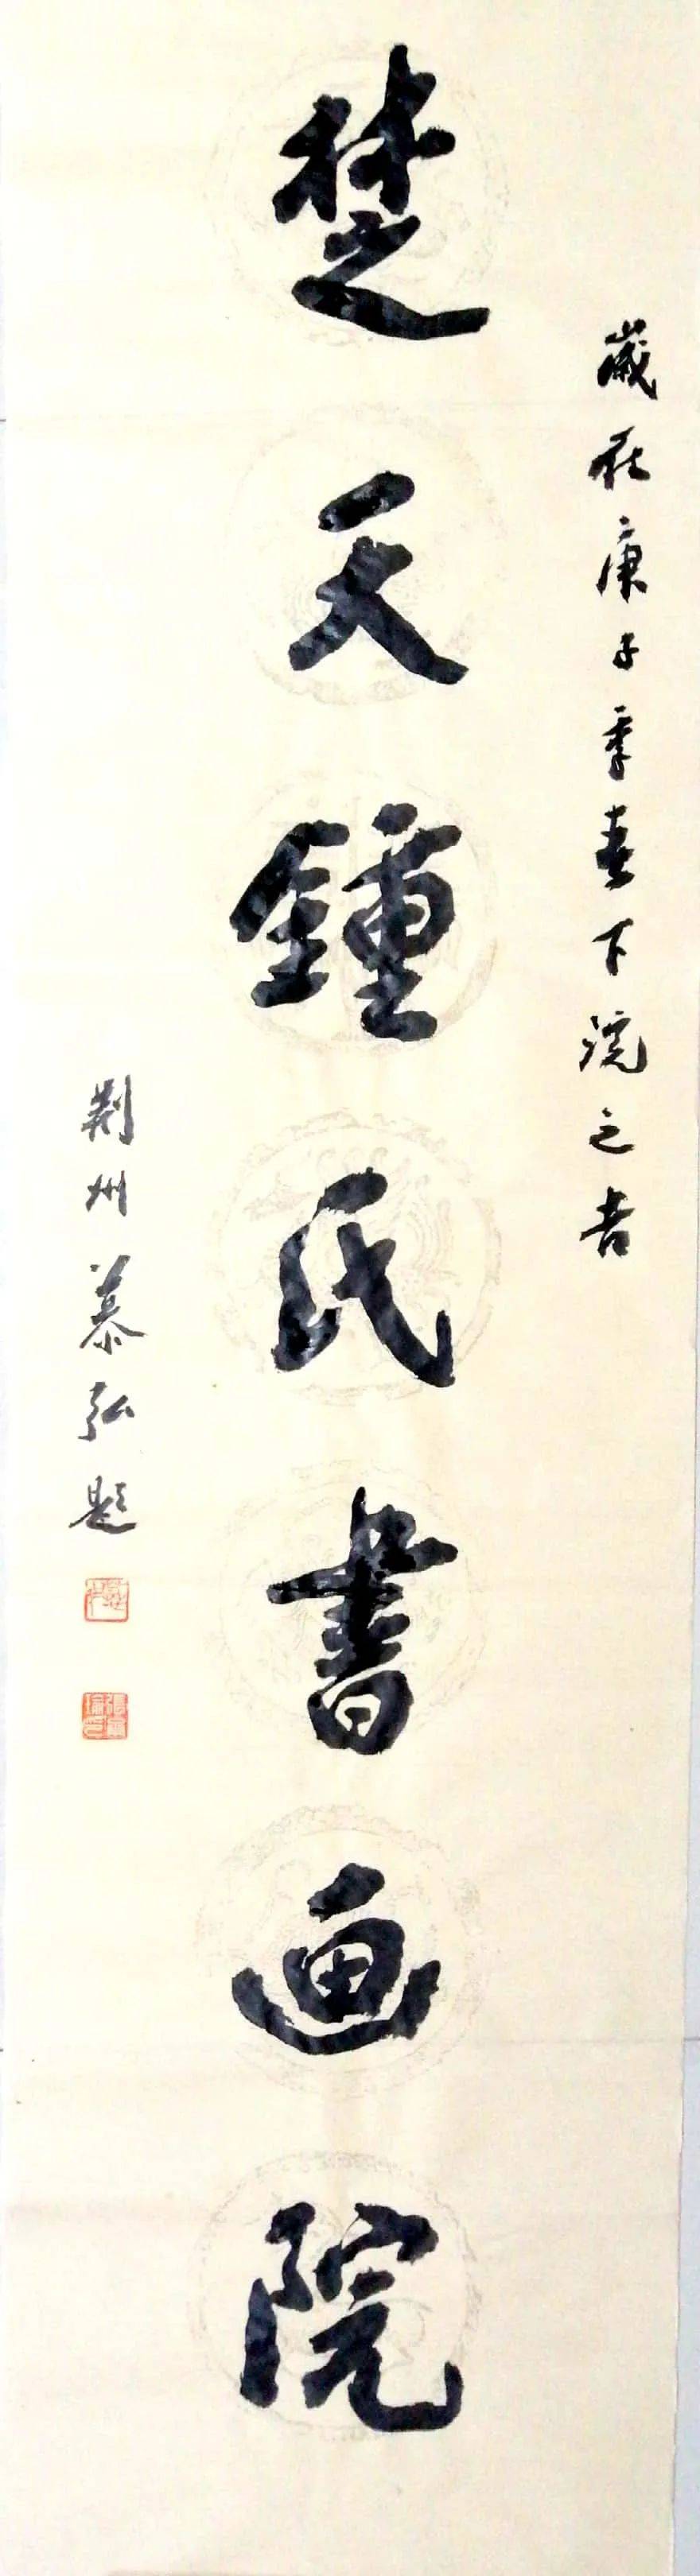 歲在庚子季春下浣之吉
楚天鍾氏書画院
荆州慕弘題